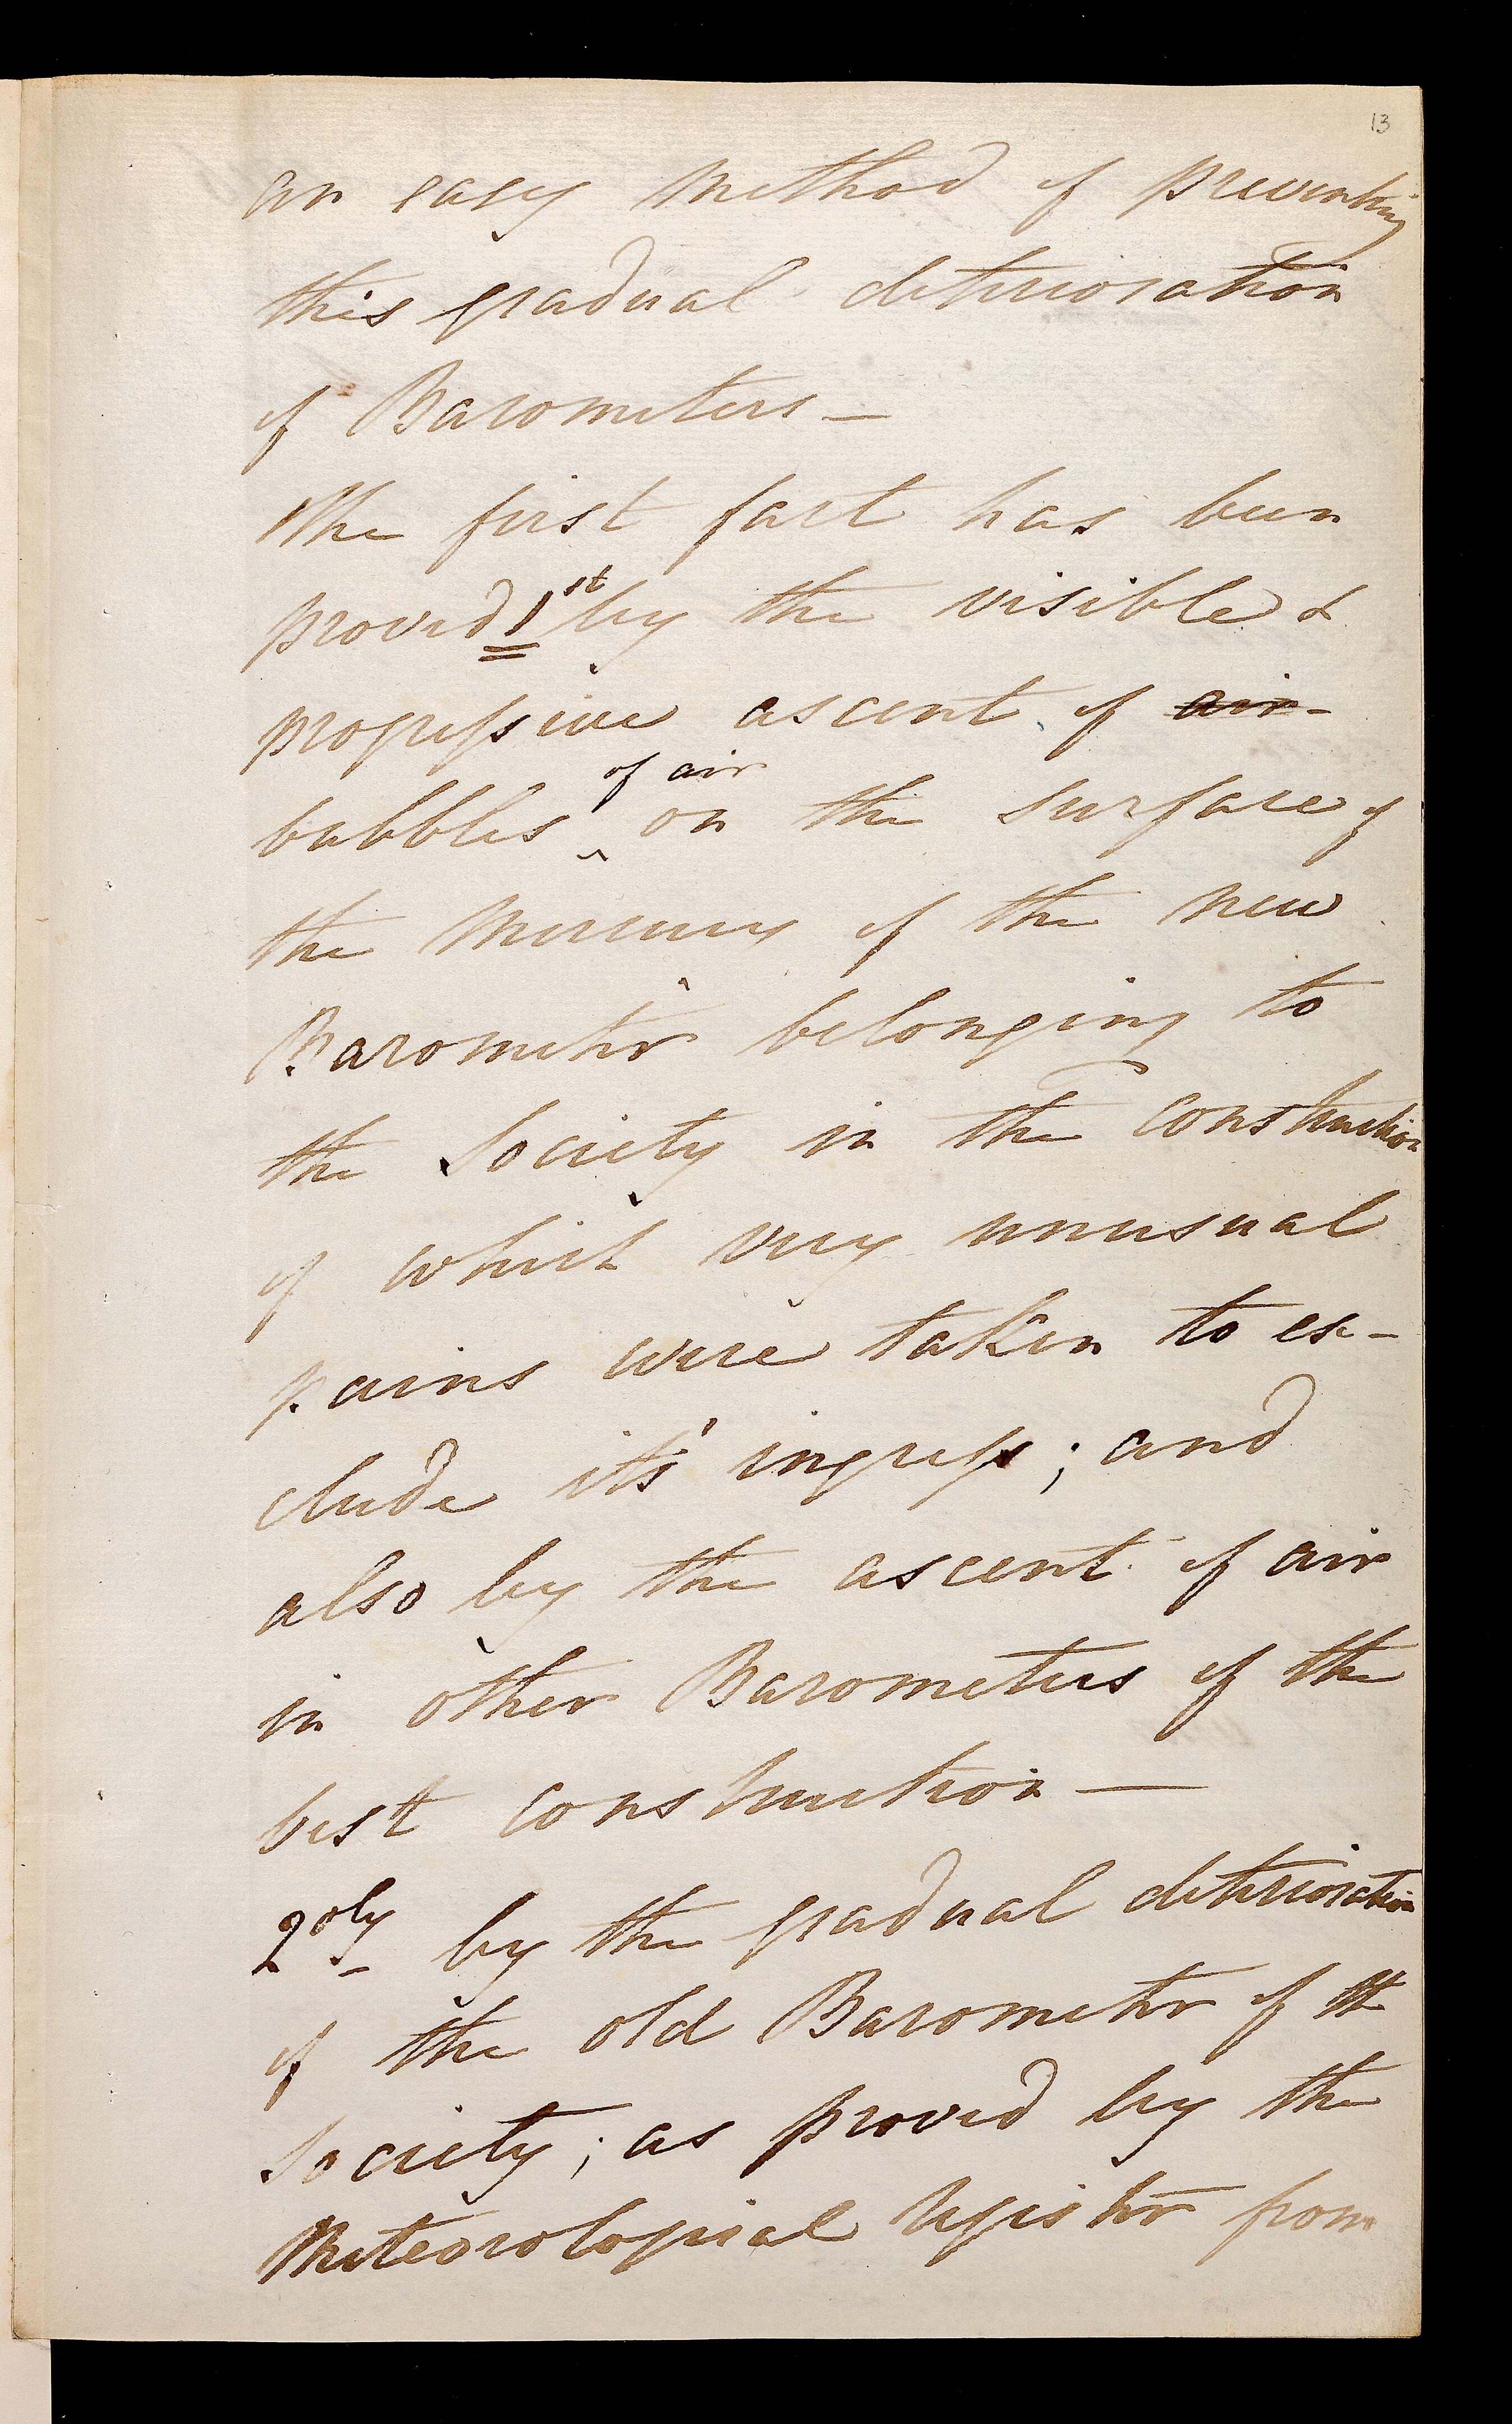 13
an easy method of preventing
this gradual deterioration
of Barometers —
The first fact has been
proved 1st by the visible &
progressive ascent of air-
bubbles of air on the surface of
the Mercury of the new
Barometer belonging to
the Society in the construction
of which very unusual
pains were taken to ex-
clude it's ingress; and
also by the ascent of air
in other Barometers of the
best construction —
2dly by the gradual deterioration
of the old Barometer of the
Society; as proved by the
Meteorological Register from